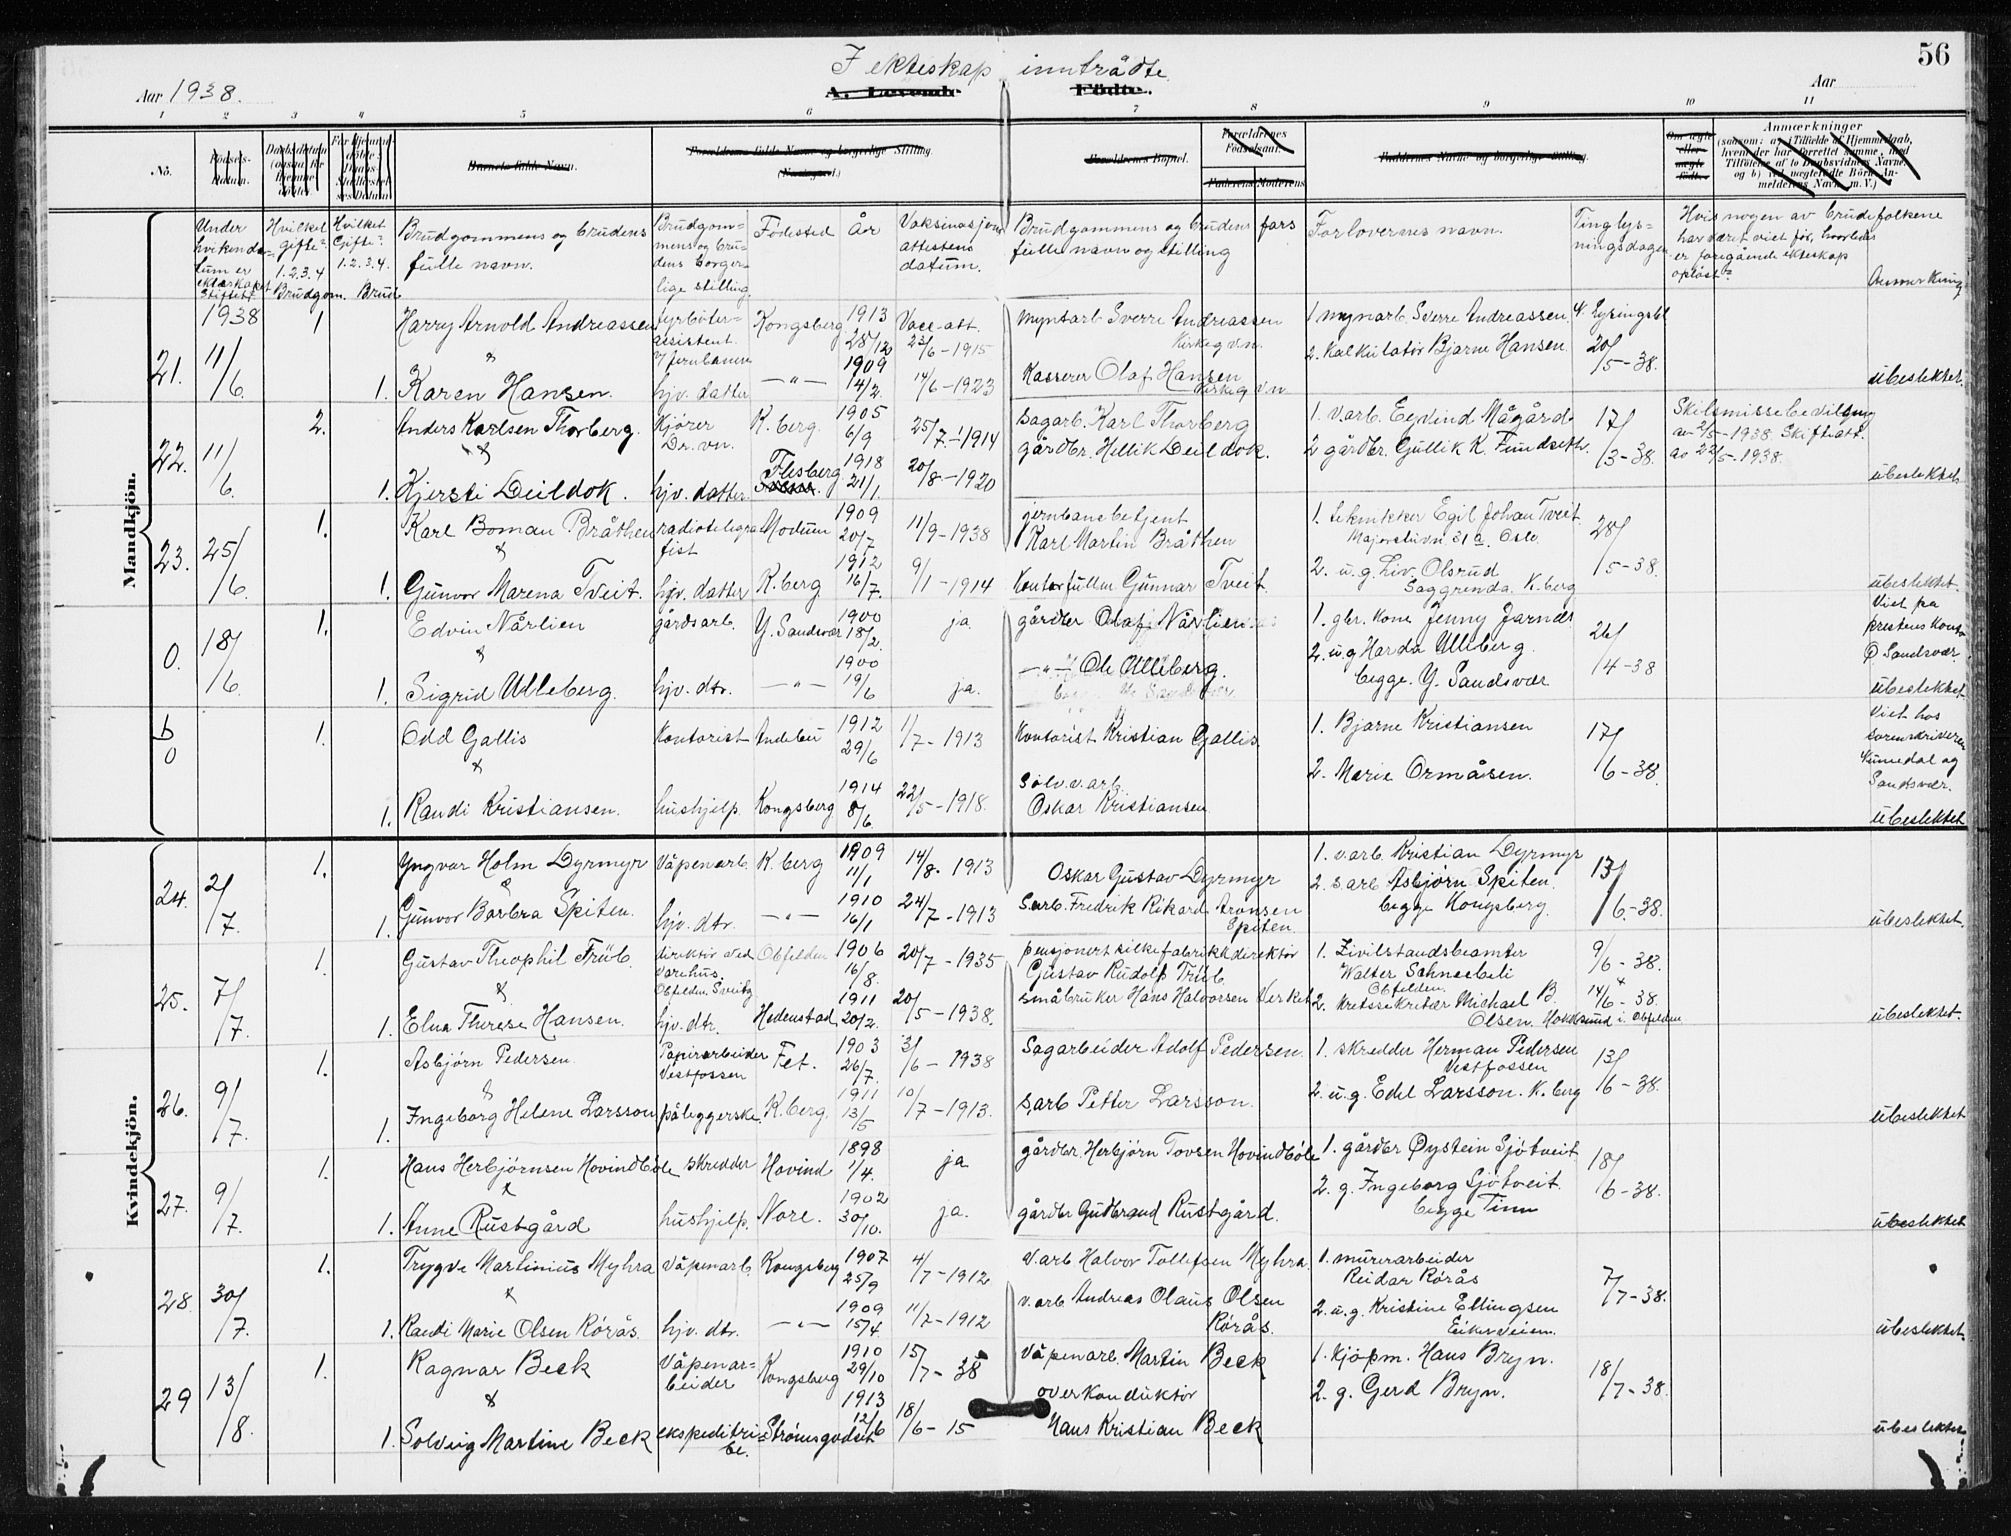 56
I ekteskap inntrådte
Aar 1938.
A. Levende
Födte.
Aar
1 2 3 4 5 6 7 8 9 10 11
No.
Födsels-
datum.
Barnets fulde Navn.
Forældrenes fulde Navne og borgerlige Stilling
Forældrenes Bopæl.
Forældrenes
Födselsaar.
Faderens Moderens
Faddernes Navne og borgerlige Stilling.
Om ægte
eller
uægte
födt.
Anmærkninger
Under
hvilken da-
tum er
ekteskapet
stiftet?
Hvilket
gifte?
1.2.3.4
Brudgom.
Hvilket
Gifte?
1.2.3.4.
Brud
Brudgommens og brudens
fulle navn.
Brudgom-
mens og bru-
dens borger-
lige stilling.
Fødested
År
Vaksinasjons
attestens
datum.
Brudgommens og brudens fars
fulle navn og stilling
Forlovernes navn.
Tinglys-
ningsdagen
Hvis nogen av brudefolkene
har været viet før, hvorledes
er foregående ekteskap
opløst?
Anmerkning
Mandkjön.
1938
21. 11/6 1 Harry Arnold Andreassen fyrbøter-
assistent
v/ jernbanen Kongsberg 1913 28/12 Vacc.att. 23/6-1915 Myntarb Sverre Andreassen
Kirkeg.vn. 1 myntarb. Sverre Andreassen
&
1. Karen Hansen. hjv. datter —"— 1909 14/2. 14/6-1923 Kasserer Olaf Hansen
Kirkeg.vn 2. Kalkulatør Bjarne Hansen. 20/5-38. ubeslektet.
22. 11/6. 2. Anders Karlsen Thorberg. Kjører
Dr.vn. K.berg. 1905 6/9 25/7-1914 Sagarb. Karl Thorberg 1. v.arb. Eyvind Mågård 17/3-38. Skilsmissebevilgning
av 2/5-1938. Skifteatt.
av 22/5-1938.
&
1. Kjersti Deildok. hjv. datter Flesberg 1918 21/1. 20/8-1920 gårdbr. Hellik Deildok. 2 gårdbr. Gullik K. ubeslektet
23. 25/6 1. Karl Boman Bråthen radiotelegra
fist Modum 1909 20/7 11/9-1938 jernbanebetjent
Karl Martin Bråthen 1. teknikker Egil Johan Tveit.
Majorstuvn 31a. Oslo 28/5-38.
&
1. Gunvor Marena Tveit. hjv. datter K.berg 1912 16/7. 9/1-1914 Kontorfullm Gunnar Tveit. 2. u.g. Liv. Olsrud
Saggrenda. K.berg ubeslektet.
0. 18/6. 1. Edvin Nårlien gårdsarb. Y. Sandsvær 1900 18/2. ja. gårdbr Olaf Nårlien 1. gbr. kone Jenny Jarnæs 26/4-38 Viet på
prestens kontor
Sandsvær.
&
1. Sigrid Ulleberg. hjv. dtr. —"— 1900 19/6 ja. —"— Ole Ulleberg. 2. u.g Harda Ulleberg.
begge. Y. Sandsvær ubeslektet.
b
0 1. Odd Gallis Kontorist Andebu 1912 29/6 1/7-1913 Kontorist Kristian Gallis 1. Bjarne Kristiansen 17/6-38. Viet hos
sorenskriveren
Numedal og
Sandsvær.
&
1. Randi Kristiansen. hushjelp. Kongsberg 1914 8/6. 22/5-1918. Sølv.v.arb.
Oskar Kristiansen 2. Marie Ormåsen. ubeslektet
Kvindekjön.
24. 2/7. 1. Yngvar Holm Dyrmyr Våpenarb. K.berg 1909 11/1 14/8-1913 Oskar Gustav Dyrmyr 1. v.arb. Kristian Dyrmyr 13/6-38.
&
1. Gunvor Barbra Spiten. hjv. dtr. —"— 1910 16/1 24/7-1913 S.arb. Fredrik Rikard Aronsen
Spiten 2. s arb Asbjørn Spiten.
begge Kongsberg. ubeslektet.
25. 7/7. 1. Gustav Theophil Trüb. direktør ved
varehus.
Obfelden. Sveitz Obfelden 1906 16/8. 20/7-1935 pensjonert silkefabrikkdirektør
Gustav Rudolf Trüb. 1. Zivilstandsbeamter
Walter Schneebeli
Obfelden. 9/6-38.
&
1. Elna Therese Hansen. hjv. dtr. Hedenstad 1911 20/2. 20/5-1938. småbruker Hans Halvorsen Verket 2. kretssekretær Michael B.
Olsen. Hokksund i. Obfelden 14/6-38. ubeslektet.
26. 9/7. 1. Asbjørn Pedersen. Papirarbeider
Vestfossen Fet. 1903 26/7. 3/6-1938 Sagarbeider Adolf Pedersen. 1. skredder Herman Pedersen
Vestfossen 13/6-38.
&
1. Ingeborg Helene Larsson påleggerske. K.berg. 1911 13/5 10/7-1913. S.arb Petter Larsson. 2. u.g. Edel Larsson. K.berg ubeslektet
27. 9/7. 1. Hans Herbjørnsen Hovindbøle skredder Hovind 1898 1/4. ja gårdbr. Herbjørn Tovsen Hovindbøle 1. gårdbr Øystein Sjøtveit 18/6-38.
&
1. Anne Rustgård hushjelp. Nore. 1902 30/10. ja. gårdbr Gudbrand Rustgård. 2. g. Ingeborg Sjøtveit.
begge Tinn ubeslektet
28. 30/7. 1. Trygve Martinius Myhra våpenarb. Kongsberg 1907 25/9 4/7-1912 V.arb Halvor Tollefsen Myhra 1. murerarbeider
Reidar Rørås 7/7-38.
&
1. Randi Marie Olsen Rørås. hjv. dtr. —"— 1909 15/4 11/7-1912 v.arb Andreas Olaus Olsen
Rørås. 2. u.g. Kristine Ellingsen
Eikerveien. ubeslektet.
29 13/8. 1. Ragnar Beck Våpenar-
beider Kongsberg 1910 29/10 15/7-38 Våpenarb. Martin Beck 1. Kjøpm. Hans Bryn. 18/7-38.
&
1. Solveig Martine Beck ekspeditri-
se. Strømsgodset 1913 12/6 18/6-15 overkonduktør
Hans Kristian Beck 2. g. Gerd Bryn. ubeslektet